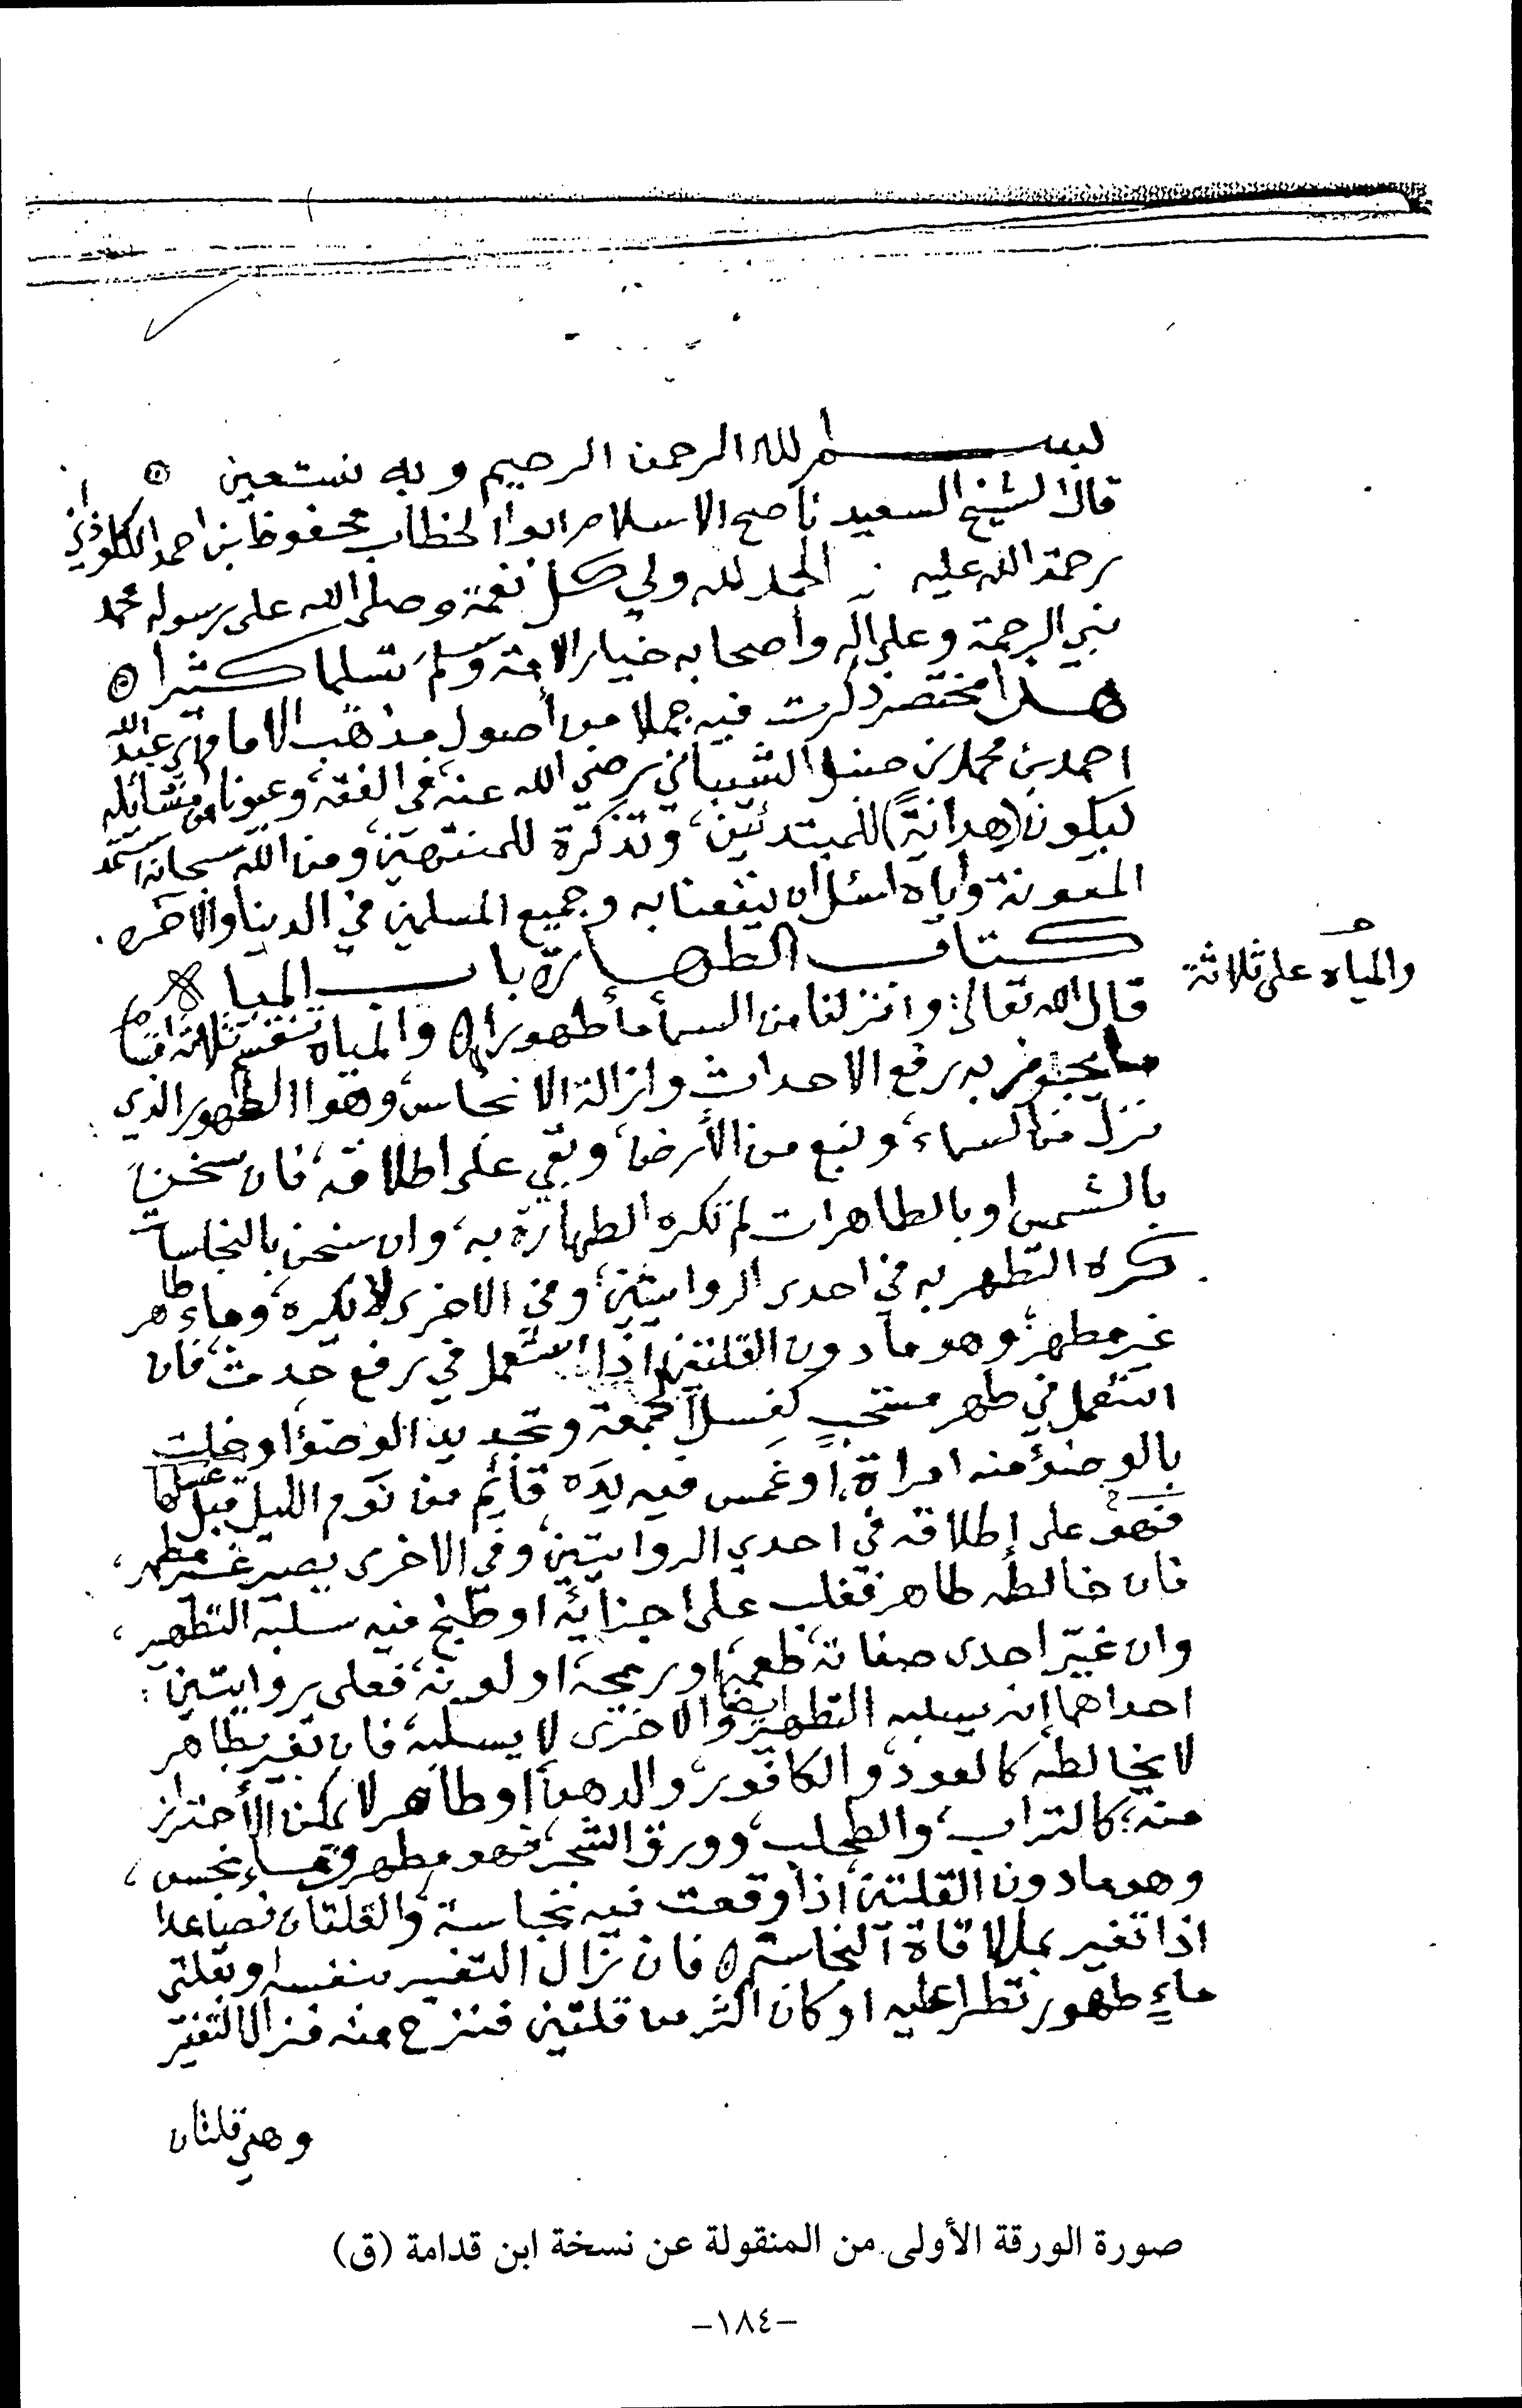 بسم الله الرحمن الرحيم وبه نستعين
قال الشيخ السعيد ناصح الاسلام ابوا الخطاب محفوظ بن احمد الكلوذاني
رحمة الله عليه : الحمد لله ولي كل نعمة وصلى الله على رسوله محمد
نبي الرحمة وعلى اله وأصحابه خيار الامة وسلم تسليما كثيرا
هذا مختصر ذكرت فيه جملا من أصول مذهب الامام ابي عبد الله
احمد بن محمد بن حنبل الشيباني رضي الله عنه، في الفقه، وعيونا من مسائله
ليكون (هداية) للمبتدئين، وتذكرة للمنتهين، ومن الله سبحانه استمد
المعونة واياه اسئل ان ينفعنا به وجميع المسلمين في الدنيا والآخره.
كتاب الطهارة باب المياه
والمياه على ثلاثة
قال الله تعالى: وانزلنا من السمآ مأ طهورا والمياه تنقسم ثلاثة اقسام
ما يجوز به رفع الاحداث وازالة الانجاس، وهوا الطهور الذي
نزل من السماء، ونبع من الأرض، وبقي على اطلاقه، فان سخن
بالشمس او بالطاهرات لم تكره الطهارة به، وان سخن بالنجاسات
كره التطهر به في احدى الروايتين، وفي الاخرى لا يكره، وماء طاهر
غير مطهر، وهو ما دون القلتين اذا استعمل في رفع حدث، فان
استعمل في طهر مستحب كغسل الجمعة وتجديد الوضؤ او خلت
بالوضؤ منه امراة، أو غمس فيه يده قائم من نوم الليل قبل غسلها
فهو على إطلاقه في احدى الروايتين، وفي الاخرى يصير غير مطهر،
فان خالطه طاهر فغلب على اجزائه او طبخ فيه سلبه التطهير،
وان غيّر احدى صفاته، طعمه، او ريحه، او لونه، فعلى روايتين:
احداهما إنه يسلبه التطهير ايضا والاخرى لا يسلبه، فان تغير بطاهر
لا يخالطه كالعود، والكافور، والدهن، او طاهر لا يمكن الأحتراز
منه؛ كالتراب، والطحلب، وورق الشجر، فهو مطهر، وماء نجس،
وهو ما دون القلتين، اذا وقعت فيه نجاسة، والقلتان فصاعدا
اذا تغير بملاقاة النجاسة فان زال التغير بنفسه او بقلتي
ماءٍ طهور تطرا عليه او كان اكثر من قلتين فنزح منه فزال التغير
وهي قلتان
صورة الورقة الأولى من المنقولة عن نسخة ابن قدامة (ق)
-١٨٤-